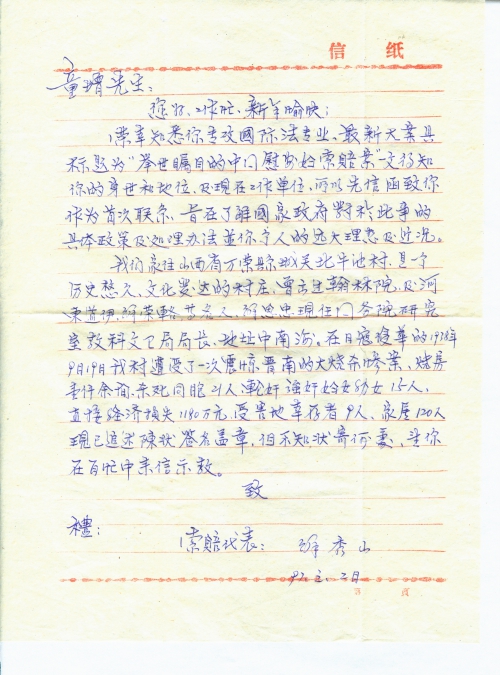 信 纸
童增先生:
您好、工作忙、新年愉快;
我荣幸知悉你专攻国际法专业、最新大案具
标题为“举世瞩目的中国慰安妇索赔案”文得知
你的身世和地位、及现在工作单位、所以先信函致你
作为首次联系、旨在了解國家政府對於此事的
具体政策及处理办法並你个人的远大理想及近况。
我们家住山西省万荣县城关北牛池村、是个
历史悠久、文化发达的村庄、曾出过翰林院、及河
東道
現任国务院研究
室教科文卫局局长、地址中南海。在日寇侵華的1938年
9月19日我村遭受了一次震惊晋南的大烧杀惨案、烧房
壹仟余间、杀死同胞21人、輪奸强奸妇女幼女15人、
直接经济损失1180万元、受害地幸存者9人、家屬120人
现已追述陳状签名盖章、但不知状寄何處、望你
在百忙中来信示教。
致
礼:
索赔代表: 薛秀山
92.2.2日